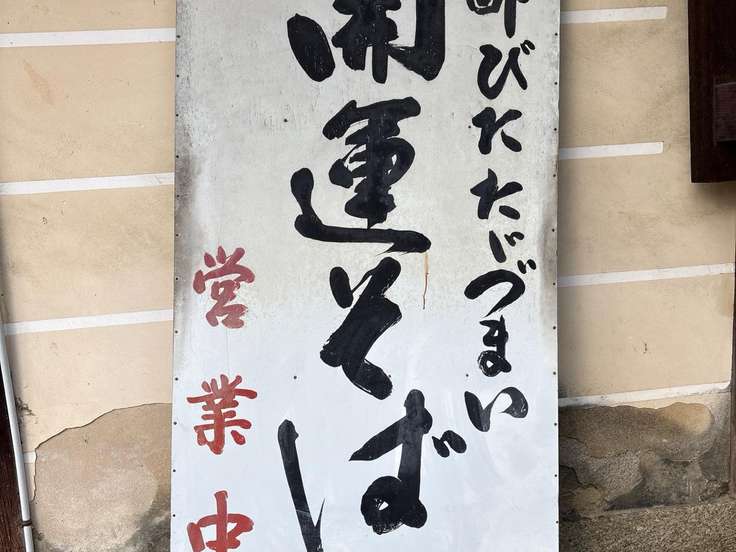 びたたゞづまい
開運そば
営業中